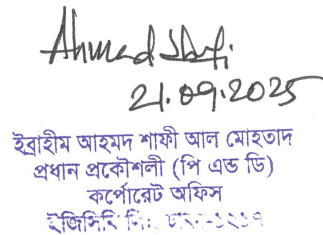 Ahmad Shafi
21.09.2025
ইব্রাহীম আহমদ শাফী আল মোহতাদ
প্রধান প্রকৌশলী (পি এন্ড ডি)
কর্পোরেট অফিস